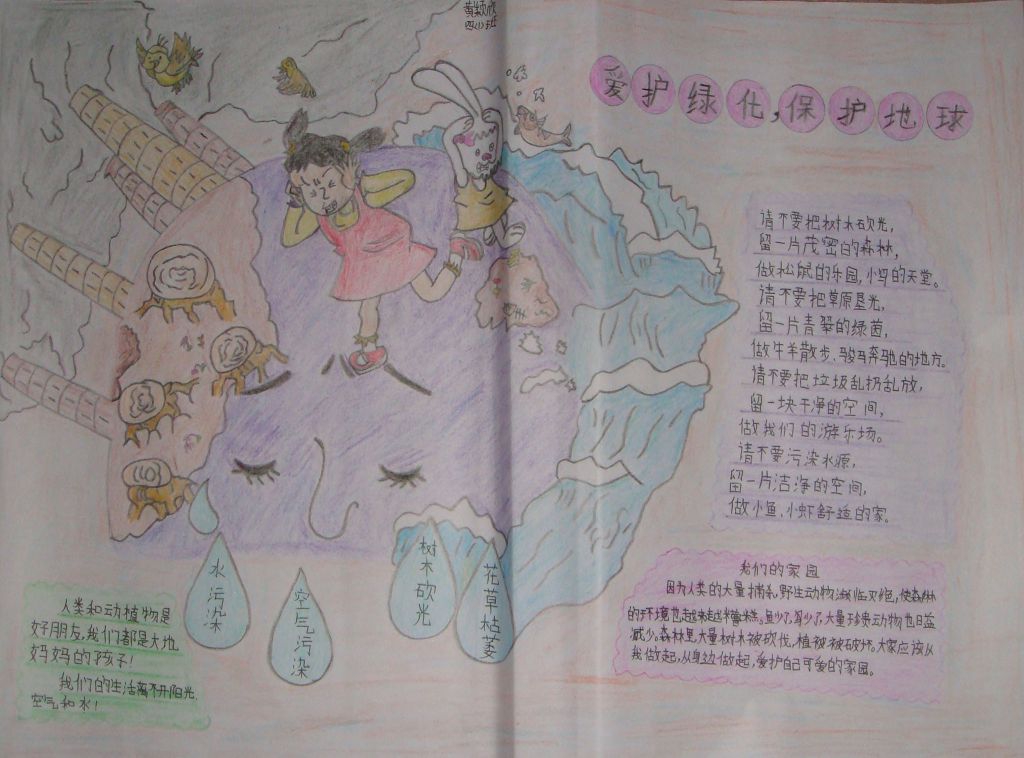 四(1)班
爱护绿化,保护地球
请不要把树木砍光,
留一片茂密的森林,
做松鼠的乐园,小鸟的天堂。
请不要把草原垦光,
留一片青翠的绿茵,
做牛羊散步、骏马奔驰的地方。
请不要把垃圾乱扔乱放,
留一块干净的空间,
做我们的游乐场。
请不要污染水源,
留一片洁净的空间,
做小鱼、小虾舒适的家。
水污染
空气污染
树木砍光
花草枯萎
人类和动植物是
好朋友,我们都是大地
妈妈的孩子!
我们的生活离不开阳光、
空气和水!
我们的家园
因为人类的大量捕杀,野生动物濒临灭绝,使森林
的环境也越来越糟糕。鱼少了,鸟少了,大量珍贵动物也日益
减少。森林里,大量树木被砍伐,植被被破坏。大家应该从
我做起,从身边做起,爱护自己可爱的家园。